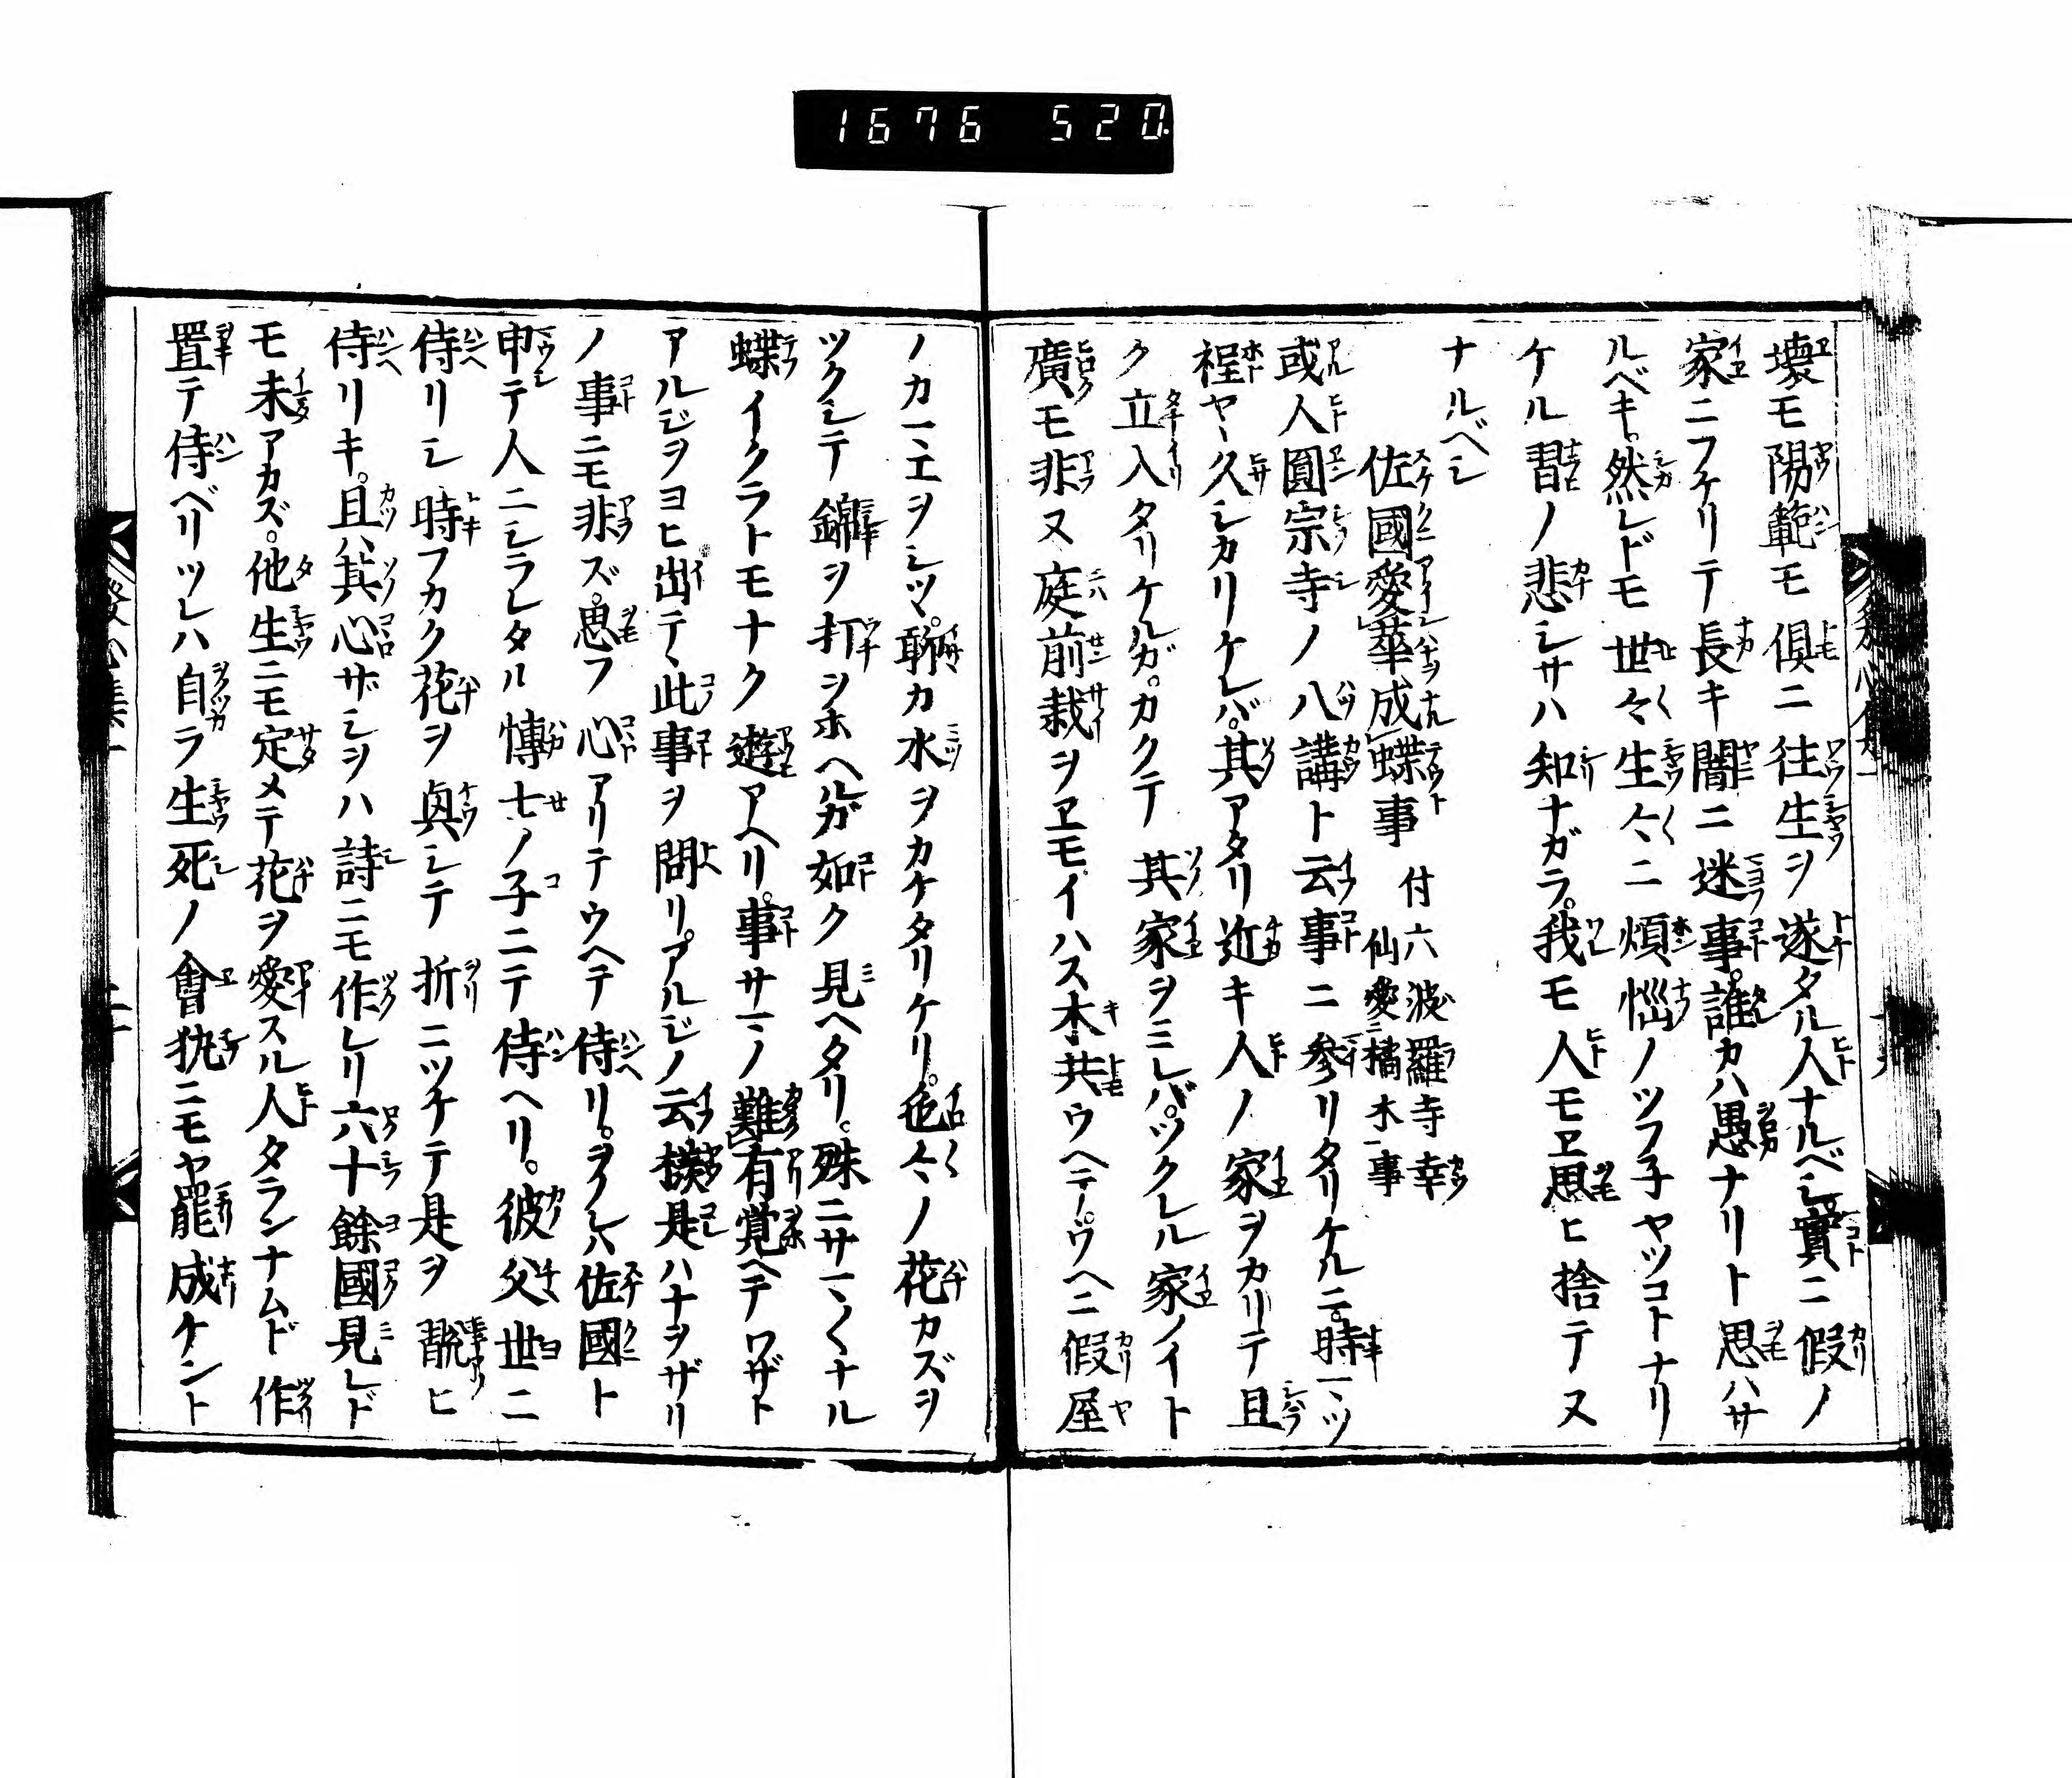 1676 520
壊モ陽範モ倶ニ往生ヲ遂タル人ナルベシ實ニ假ノ
家ニフケリテ長キ闇ニ迷事。誰カハ愚ナリト思ハサ
ルベキ。然レドモ世々生々ニ煩惱ノツフ子ヤツコトナリ
ケル習ノ悲シサハ知ナガラ。我モ人モヱ思ヒ捨テヌ
ナルベシ
佐國愛華成蝶事 付六波羅寺幸仙愛橘木事
或人圓宗寺ノ八講ト云事ニ参リタリケルニ。時マツ
程ヤヽ久シカリケレバ。其アタリ近キ人ノ家ヲカリテ且
ク立入タリケルガ。カクテ其家ヲミレバ。ツクレル家ノイト
廣モ非ヌ庭前栽ヲヱモイハス木共ウヘテ。ウヘニ假屋
ノカマエヲシツヽ。聊カ水ヲカケタリケリ。色々ノ花カズヲ
ツクシテ錦ヲ打ヲホヘルガ如ク見ヘタリ。殊ニサマ〱ナル
蝶イクラトモナク遊アヘリ。事サマノ難有覚ヘテワザト
アルジヲヨヒ出テヽ此事ヲ問リ。アルジノ云樣是ハナヲザリ
ノ事ニモ非ズ。思フ心アリテウヘテ侍リ。ヲノレハ佐國ト
申テ人ニシラレタル博士ノ子ニテ侍ヘリ。彼父世ニ
侍リシ時フカク花ヲ興シテ折ニツケテ是ヲ翫ヒ
侍リキ。且ハ其心ザシヲハ詩ニモ作レリ六十餘國見レド
モ未アカズ。他生ニモ定メテ花ヲ愛スル人タランナムド作
置テ侍ベリツレハ自ラ生死ノ會執ニモヤ罷成ケント